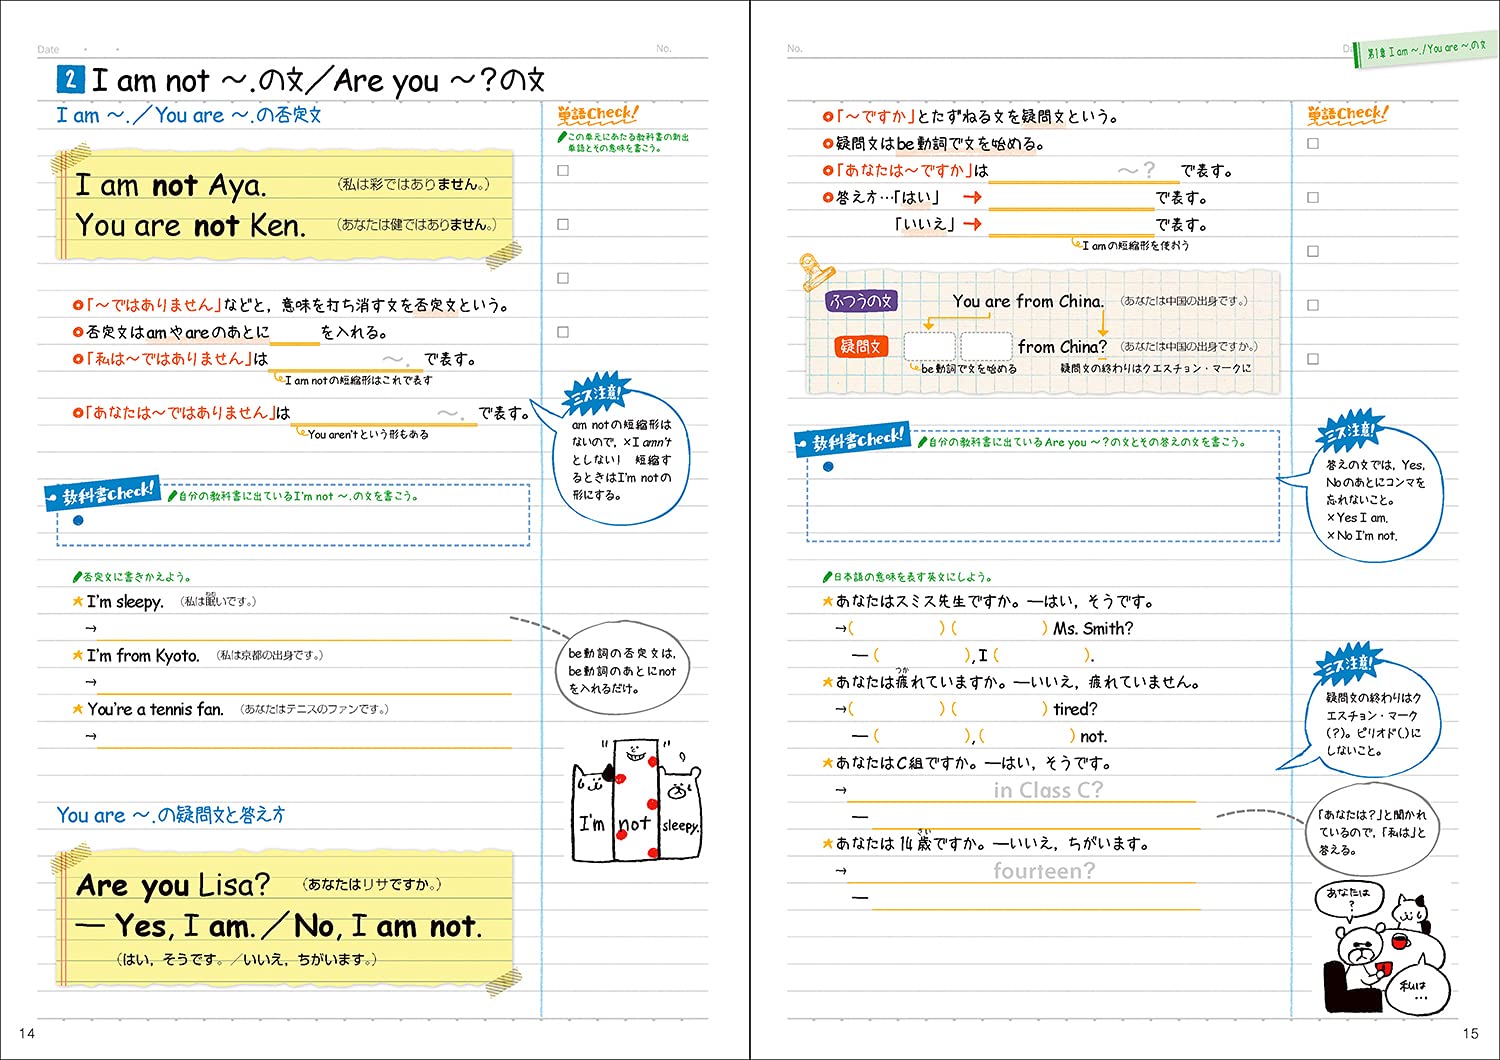 Date ・ ・
No.
2 I am not ～.の文／Are you ～?の文
I am ～.／You are ～.の否定文
I am not Aya. （私は彩ではありません。）
You are not Ken. （あなたは健ではありません。）
「～ではありません」などと，意味を打ち消す文を否定文という。
否定文はamやareのあとに を入れる。
「私は～ではありません」は ～. で表す。
I am notの短縮形はこれで表す
「あなたは～ではありません」は ～. で表す。
You aren'tという形もある
教科書Check!
自分の教科書に出ているI'm not ～.の文を書こう。
否定文に書きかえよう。
I'm sleepy. （私は眠いです。）
ねむ
→
I'm from Kyoto. （私は京都の出身です。）
→
You're a tennis fan. （あなたはテニスのファンです。）
→
You are ～.の疑問文と答え方
Are you Lisa? （あなたはリサですか。）
— Yes, I am.／No, I am not.
（はい，そうです。／いいえ，ちがいます。）
単語Check!
この単元にあたる教科書の新出
単語とその意味を書こう。
ミス注意!
am notの短縮形は
ないので，×I amn't
としない! 短縮す
るときはI'm notの
形にする。
be動詞の否定文は，
be動詞のあとにnot
を入れるだけ。
I'm not sleepy.
14
No.
D
第1章 I am ～./You are ～.の文
「～ですか」とたずねる文を疑問文という。
疑問文はbe動詞で文を始める。
「あなたは～ですか」は ～? で表す。
答え方…「はい」 → で表す。
「いいえ」 → で表す。
I amの短縮形を使おう
ふつうの文 You are from China. （あなたは中国の出身です。）
疑問文 from China? （あなたは中国の出身ですか。）
be動詞で文を始める 疑問文の終わりはクエスチョン・マークに
教科書Check!
自分の教科書に出ているAre you ～?の文とその答えの文を書こう。
日本語の意味を表す英文にしよう。
あなたはスミス先生ですか。—はい，そうです。
→( ) ( ) Ms. Smith?
— ( ), I ( ).
つか
あなたは疲れていますか。—いいえ，疲れていません。
→( ) ( ) tired?
— ( ), ( ) not.
あなたはC組ですか。—はい，そうです。
→ in Class C?
—
さい
あなたは14歳ですか。—いいえ，ちがいます。
→ fourteen?
—
単語Check!
ミス注意!
答えの文では，Yes,
Noのあとにコンマを
忘れないこと。
×Yes I am.
×No I'm not.
ミス注意!
疑問文の終わりはク
エスチョン・マーク
(?)。ピリオド(.)に
しないこと。
「あなたは?」と聞かれ
ているので，「私は」と
答える。
あなたは
?
私は
…
15